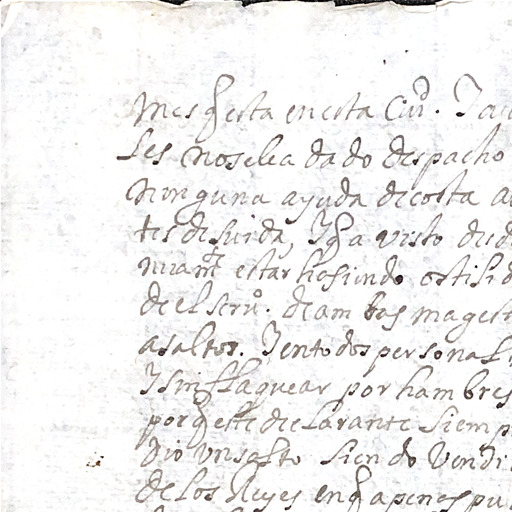 mes q̃ esta en esta Ciud. I au
les no se le a dado despacho
ninguna ayuda de costa a
tes de su ida, I q̃ a visto desd
nuamte estar hasiendo
de el seru.o de am bas magest
asaltos. I en todos personal
I sin flaquear por hambres
porq̃ este declarante siemp
Dio un salto siendo Vendi
de los Reyes en q̃ apenas pu